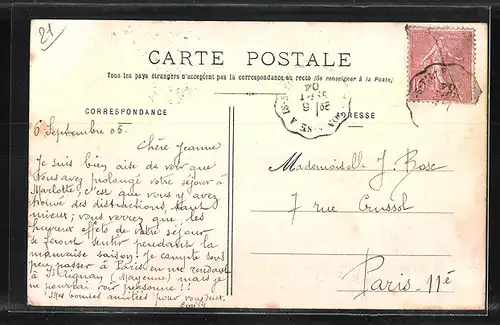 21
CARTE POSTALE
Tous les pays étrangers n'acceptent pas la correspondance au recto (Se renseigner à la Poste)
CORRESPONDANCE
ADRESSE
6 Septembre 05.
Chère Jeanne
Je suis bien aise de voir que
vous avez prolongé votre séjour à
Marlotte, c'est que vous y avez
trouvé des distractions, tant
mieux; vous verrez que les
heureux effets de votre séjour
se feront sentir pendant la
mauvaise saison. Je compte sous
peu passer à Paris en me rendant
à St Aignan (Mayenne) mais je
ne pourrai voir personne!!
Mes bonnes amitiés pour vous deux.
Mademoiselle J. Bosc
7 rue Crussol
Paris-11e